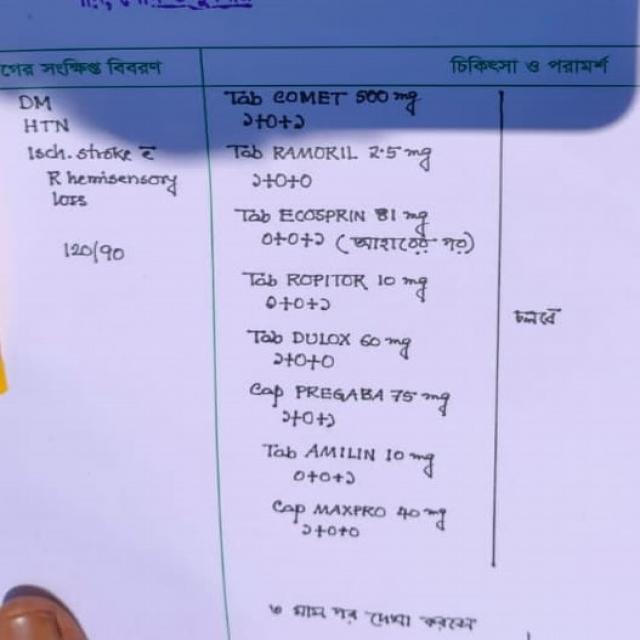 গের সংক্ষিপ্ত বিবরণ
চিকিৎসা ও পরামর্শ
DM
HTN
Isch. stroke c̄
R hemisensory
loss
120/90
Tab COMET 500 mg
১+০+১
Tab RAMORIL 2.5 mg
১+০+০
Tab ECOSPRIN 81 mg
০+০+১ (আহারের পর)
Tab ROPITOR 10 mg
০+০+১
Tab DULOX 60 mg
১+০+০
Cap PREGABA 75 mg
১+০+১
Tab AMILIN 10 mg
০+০+১
Cap MAXPRO 40 mg
১+০+০
চলবে
৩ মাস পর দেখা করবেন